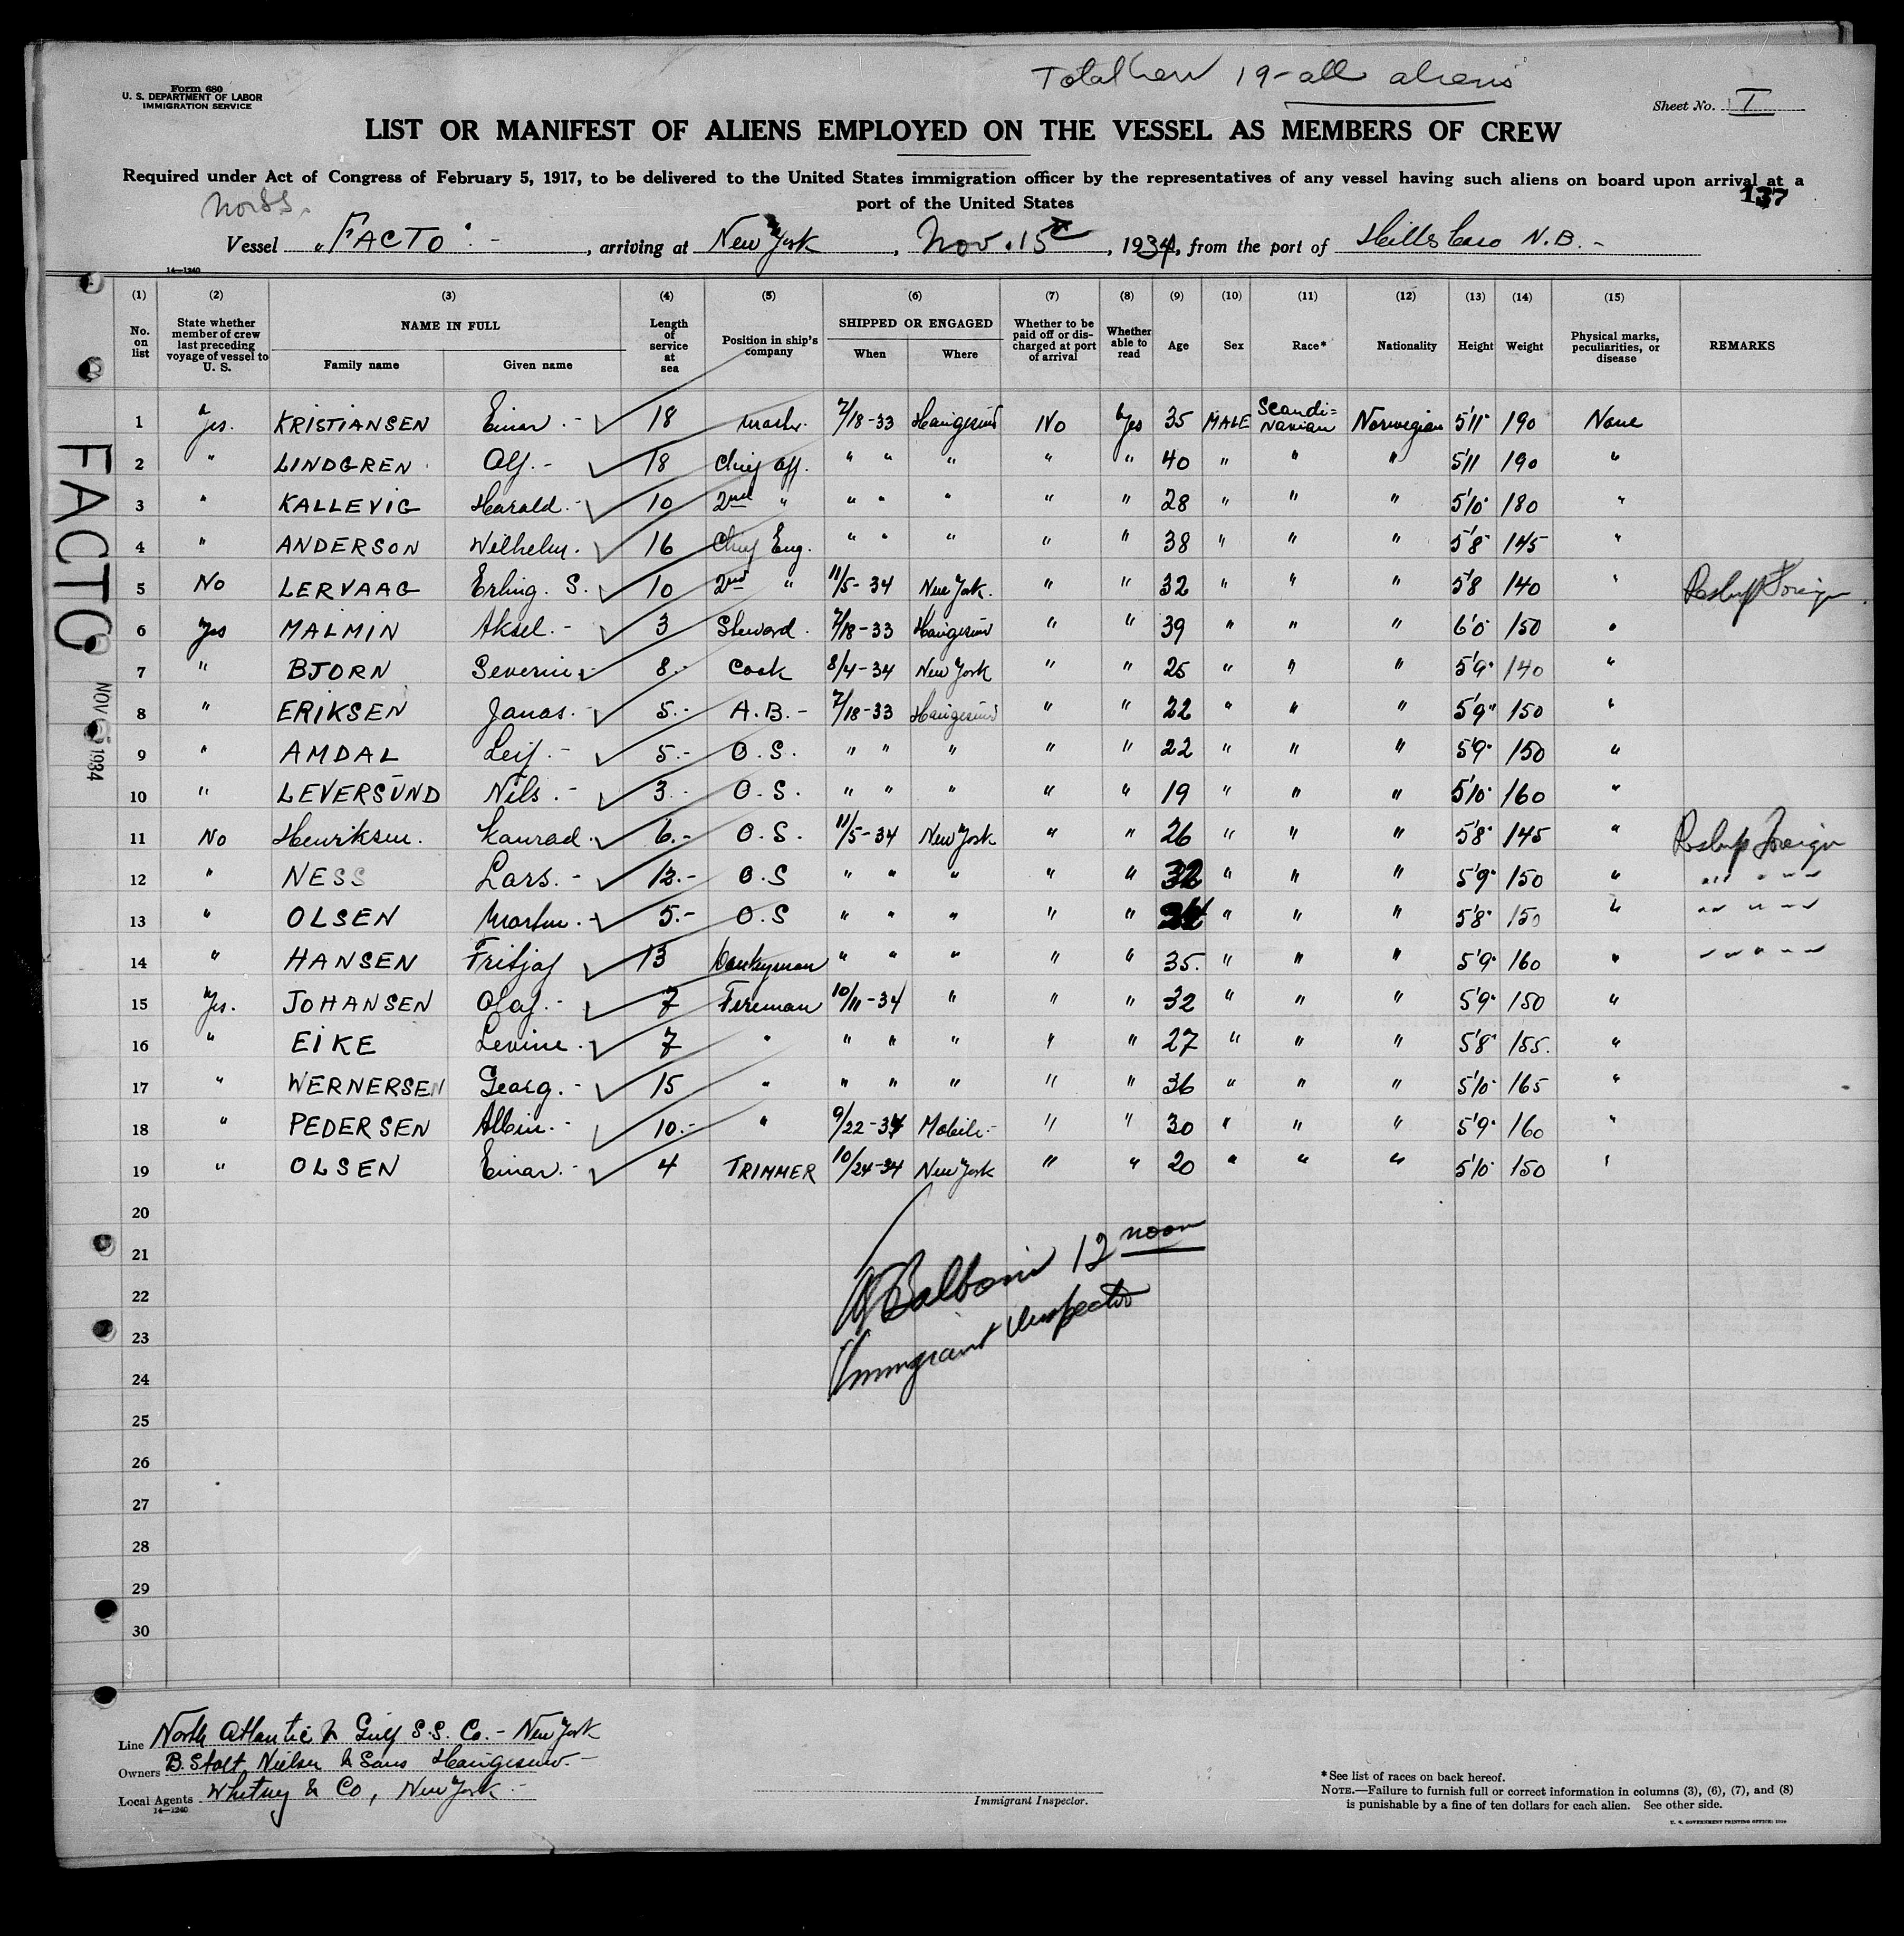 Total Crew 19 - all aliens
Form 680
U. S. DEPARTMENT OF LABOR
IMMIGRATION SERVICE
Sheet No. I
LIST OR MANIFEST OF ALIENS EMPLOYED ON THE VESSEL AS MEMBERS OF CREW
Required under Act of Congress of February 5, 1917, to be delivered to the United States immigration officer by the representatives of any vessel having such aliens on board upon arrival at a
port of the United States
137
Vessel "FACTO". - , arriving at New York , Nov. 15 , 1934, from the port of Hillsboro N.B. -
14—1240
(1) (2) (3) (4) (5) (6) (7) (8) (9) (10) (11) (12) (13) (14) (15)
No. on list | State whether member of crew last preceding voyage of vessel to U. S. | NAME IN FULL | Length of service at sea | Position in ship's company | SHIPPED OR ENGAGED | Whether to be paid off or discharged at port of arrival | Whether able to read | Age | Sex | Race* | Nationality | Height | Weight | Physical marks, peculiarities, or disease | REMARKS
Family name | Given name | When | Where
1 Yes. KRISTIANSEN Einar. - 18 Master. 7/18-33 Haugesund No Yes 35 MALE Scandi=navian Norwegian 5'11" 190 None
2 " LINDGREN Alf. - 18 Chief Off. " " " " " 40 " " " 5'11 190 "
3 " KALLEVIG Harald. - 10 2nd " " " " " " 28 " " " 5'10" 180 "
4 " ANDERSON Wilhelm. 16 Chief Eng. " " " " " 38 " " " 5'8" 145 "
5 No LERVAAG Erling. S. 10 2nd " 11/5-34 New York. " " 32 " " " 5'8 140 " Reship Foreign
6 Yes MALMIN Aksel. - 3 Steward. 7/18-33 Haugesund " " 39 " " " 6'0" 150 "
7 " BJORN Severin. 8.- Cook 8/4-34 New York " " 25 " " " 5'9" 140 "
8 " ERIKSEN Jonas. - 5.- A.B. - 7/18-33 Haugesund " " 22 " " " 5'9" 150 "
9 " AMDAL Leif. - 5.- O.S. " " " " " 22 " " " 5'9" 150 "
10 " LEVERSUND Nils. - 3.- O.S. " " " " " 19 " " " 5'10" 160 "
11 No Henriksen. Konrad. 6.- O.S. 11/5-34 New York " " 26 " " " 5'8" 145 " Reship Foreign
12 " NESS Lars. - 12.- O.S " " " " " 32 " " " 5'9" 150 " " " " "
13 " OLSEN Morten. - 5.- O.S " " " " " 24 " " " 5'8" 150 " " " " "
14 " HANSEN Fritjof 13 Donkeyman " " " " " 35. " " " 5'9" 160 " " " " "
15 Yes. JOHANSEN Olaf. - 7 Fireman 10/11-34 " " " 32 " " " 5'9" 150 "
16 " EIKE Levine. 7 " " " " " " 27 " " " 5'8" 155. "
17 " WERNERSEN Georg. - 15 " " " " " " 36 " " " 5'10" 165 "
18 " PEDERSEN Albin. - 10.- " 9/22-34 Mobile- " " 30 " " " 5'9" 160 "
19 " OLSEN Einar. - 4 TRIMMER 10/24-34 New York " " 20 " " " 5'10" 150 "
20
21
22
23
24
25
26
27
28
29
30
FACTO
NOV 1934
12 noon
Immigrant Inspector
Line North Atlantic & Gulf S.S. Co. - New York
Owners B. Stolt Nielsen & Sons Haugesund -
Local Agents Whitney & Co, New York -
14—1240
Immigrant Inspector.
* See list of races on back hereof.
NOTE.—Failure to furnish full or correct information in columns (3), (6), (7), and (8)
is punishable by a fine of ten dollars for each alien. See other side.